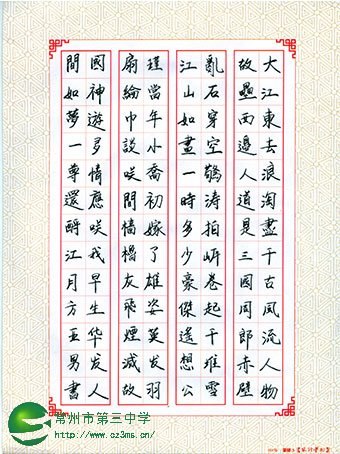 大江東去浪淘盡千古風流人物
故壘西邊人道是三國周郎赤壁
亂石穿空驚涛拍岸卷起千堆雪
江山如畫一時多少豪傑遙想公
瑾當年小喬初嫁了雄姿英发羽
扇綸巾談咲間檣櫓灰飛煙滅故
國神遊多情應咲我早生华发人
間如夢一尊還酹江月方亚男書
常州市第三中学
http://www.cz3ms.cn/